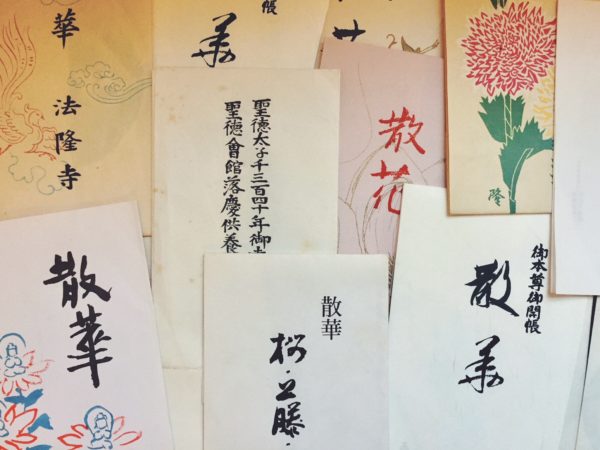 華 法隆寺
帳
華
聖徳太子千三百四十年御
聖徳會館落慶供養
散花
隆
散華
散華
桜・藤・
御本尊御開帳
散華